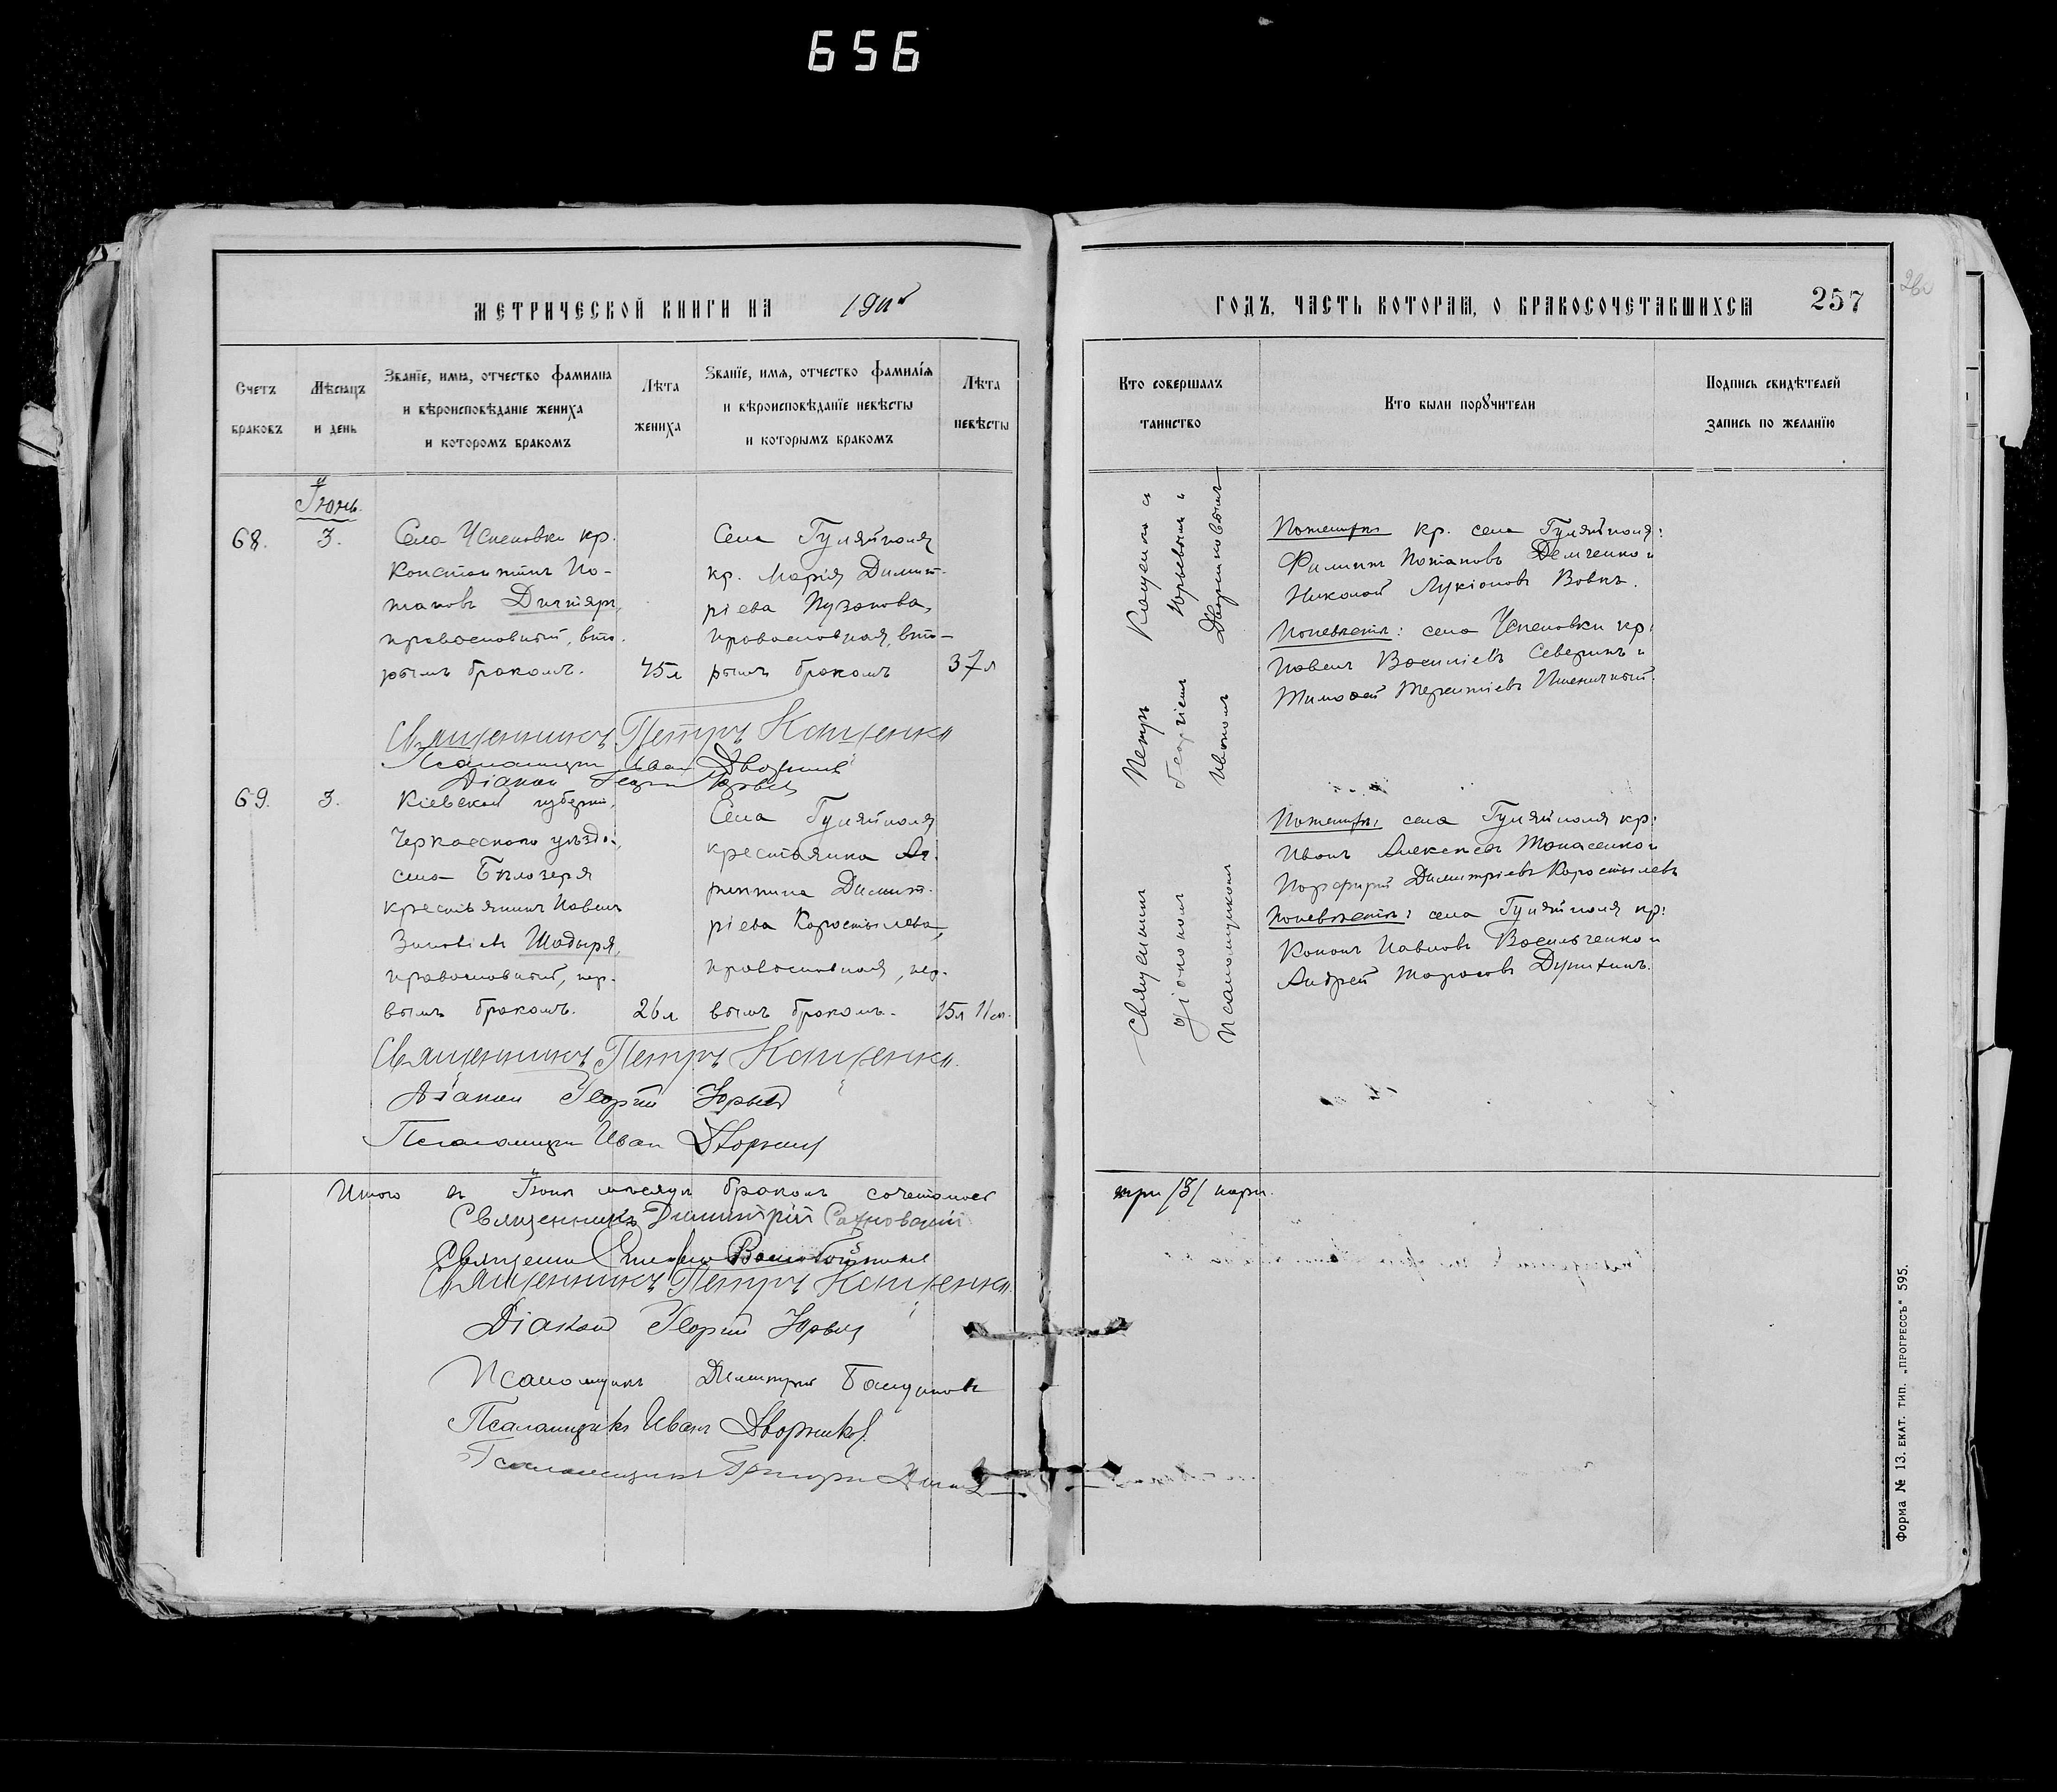 656
МЕТРИЧЕСКОЙ КНИГИ НА
ГОДЪ, ЧАСТЬ КОТОРАЯ, О БРАКОСОЧЕТАВШИХСЯ 257
Счетъ браковъ
Мѣсяцъ и день
Званїе, имя, отчество фамилия
и вѣроисповѣданїе жениха
и которомъ бракомъ
Лѣта
жениха
Званїе, имя, отчество фамилїя
и вѣроисповѣданїе невѣсты
и которымъ бракомъ
Лѣта
невѣсты
Кто совершалъ
таинство
Кто были порꙋчители
Подпись свидѣтелей
запись по желанїю
Іюнь.
68. 3.
Села Успеновки кр.
Константинъ По-
таповъ Дигтярь,
православный, вто-
рымъ бракомъ. 45л
Села Гуляйполя
кр. Марія Димит-
ріева Пузанова,
православная, вто-
рымъ бракомъ 37л
Священникъ Петръ Кащенко
Псаломщик Иван
Діакон Георгий Юрьев
69. 3.
Кіевской губерніи,
Черкасскаго уѣзда,
села Бѣлозерья
крестьянинъ Павелъ
Зиновіевъ Шадыря,
православный, пер-
вымъ бракомъ. 26л
Села Гуляйполя
крестьянка Аг-
риппина Димит-
ріева Коростылева,
православная, пер-
вымъ бракомъ. 15л 11м.
Священникъ Петръ Кащенко.
Діакон Георгий Юрьев
Псаломщик Иван Дворников
Итого въ Іюнѣ мѣсяцѣ бракомъ сочеталось
Священникъ Димитрій Сахновский
Священник
Священникъ Петръ Кащенко.
Діакон Георгий Юрьев
Псаломщикъ Димитрий
Псаломщикъ Иванъ Дворников
Псаломщикъ Григорий
Священникъ Петръ Кащенко съ
діакономъ Георгіемъ Юрьевымъ и
псаломщикомъ Иваномъ Дворниковымъ
По женихѣ кр. села Гуляйполя:
Филиппъ Потаповъ Демченко и
Николай Лукіановъ Вовкъ.
По невѣстѣ: села Успеновки кр:
Павелъ Василіевъ Северинъ и
Тимофей Терентіевъ Пшеничный.
По женихѣ: села Гуляйполя кр:
Иванъ Алексѣевъ Танасенко и
Порфирій Димитріевъ Коростылевъ
По невѣстѣ: села Гуляйполя кр:
Кононъ Павловъ Васильченко и
Андрей Тарасовъ
три /3/ пары.
Форма № 13. ЕКАТ. ТИП. „ПРОГРЕССЪ" 595.